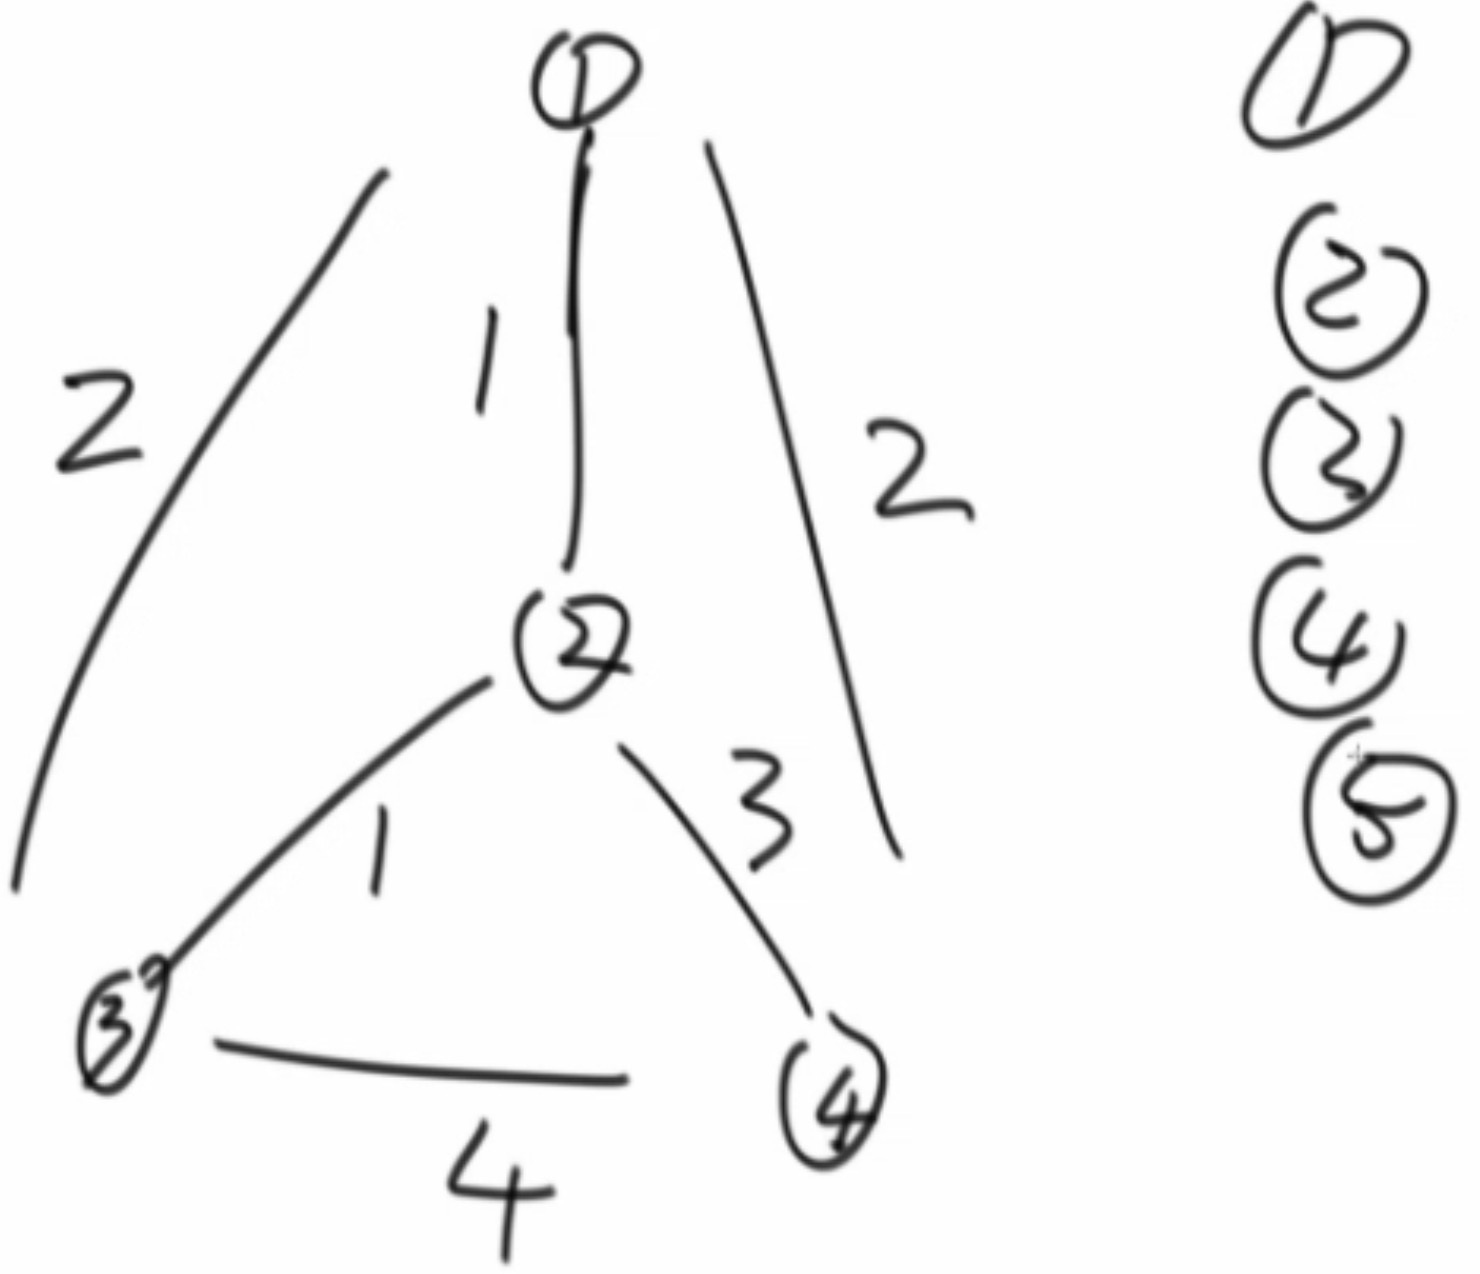 ①
1
2
2
②
3
1
③
④
4
①
②
③
④
⑤